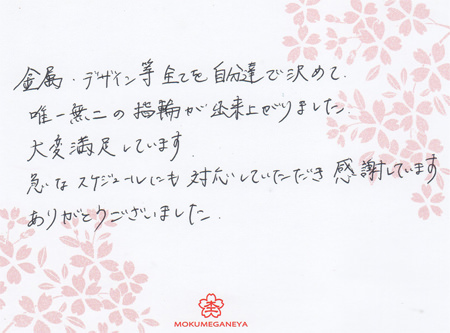 金属・デザイン等全てを自分達で決めて、
唯一無二の指輪が出来上がりました。
大変満足しています。
急なスケジュールにも対応していただき感謝しています
ありがとうございました。
MOKUMEGANEYA